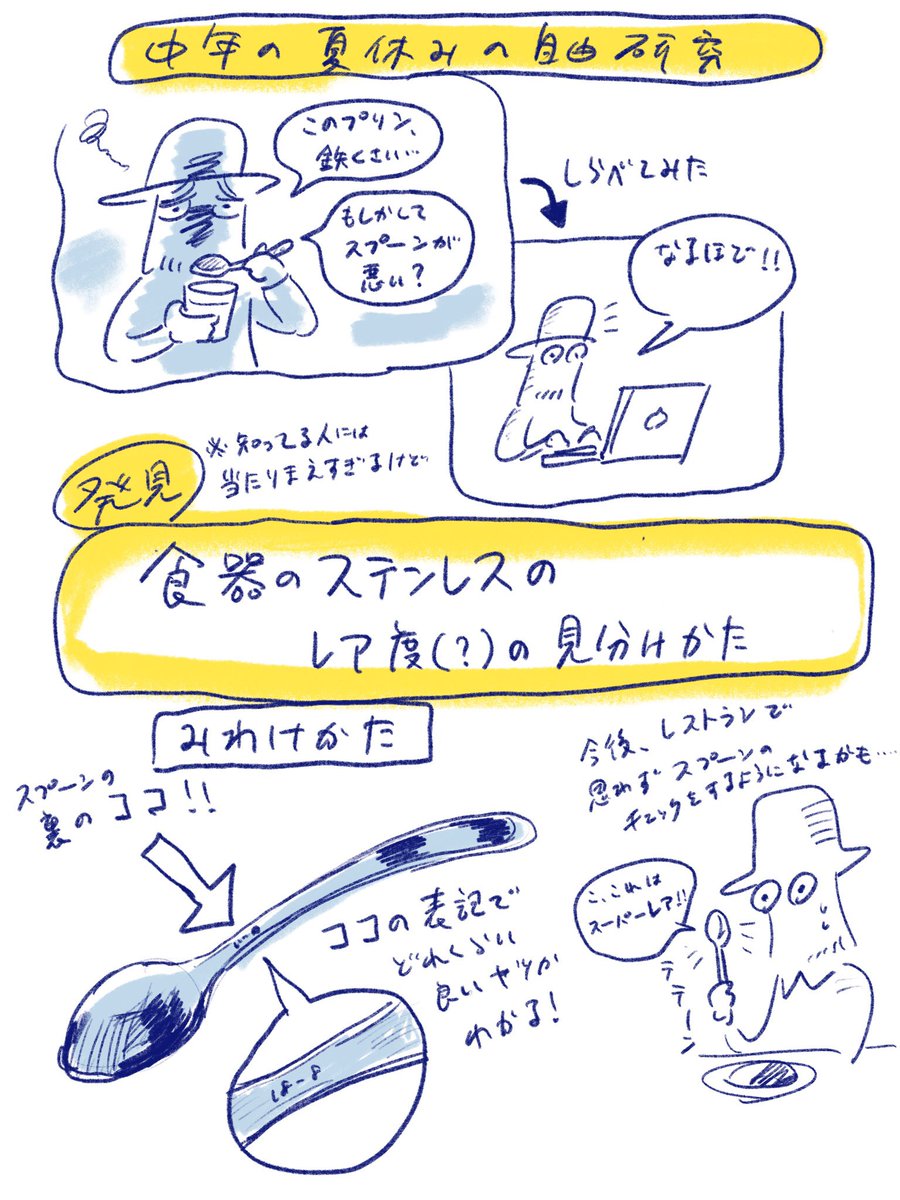 中年の夏休みの自由研究
このプリン、
鉄くさい…
もしかして
スプーンが
悪い?
しらべてみた
なるほど!!
発見
※知ってる人には
当たりまえすぎるけど
食器のステンレスの
レア度(?)の見分けかた
みわけかた
スプーンの
裏のココ!!
ココの表記で
どれくらい
良いヤツか
わかる!
18-8
今後、レストランで
思わずスプーンの
チェックをするようになるかも….
こ、これは
スーパーレア!!
テテーン